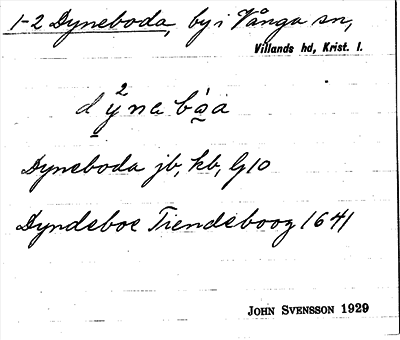 1-2 Dyneboda, by i Vånga sn,
Villands hd, Krist. l.
dy²neba̠a
Dyneboda jb, kb, G10
Dyndeboe Tiendeboog 1641
JOHN SVENSSON 1929